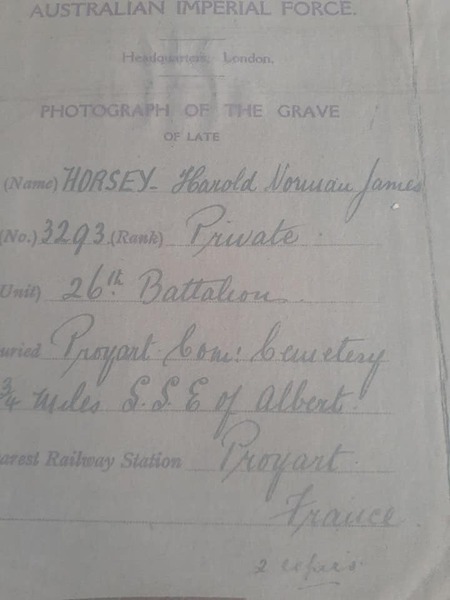 AUSTRALIAN IMPERIAL FORCE.
Headquarters, London.
PHOTOGRAPH OF THE GRAVE
OF LATE
(Name) HORSEY - Harold Norman James
(No.) 3293 (Rank) Private
Unit) 26th Battalion
uried Proyart Com: Cemetery
3/4 miles S.S.E of Albert.
arest Railway Station Proyart
France
2 copies